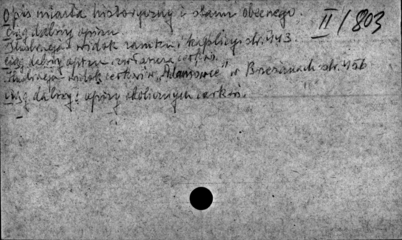 Opis miasta historyczny i stanu obecnego.
II/803
Ciąg dalszy opisu
Ilustracja: widok zamku i kaplicy. str. 443.
Ciąg dalszy opisu
Ilustracja: widok cerkwi w „Adamówce" w Brzeżanach str. 456
Ciąg dalszy: opisy okolicznych cerkwi.